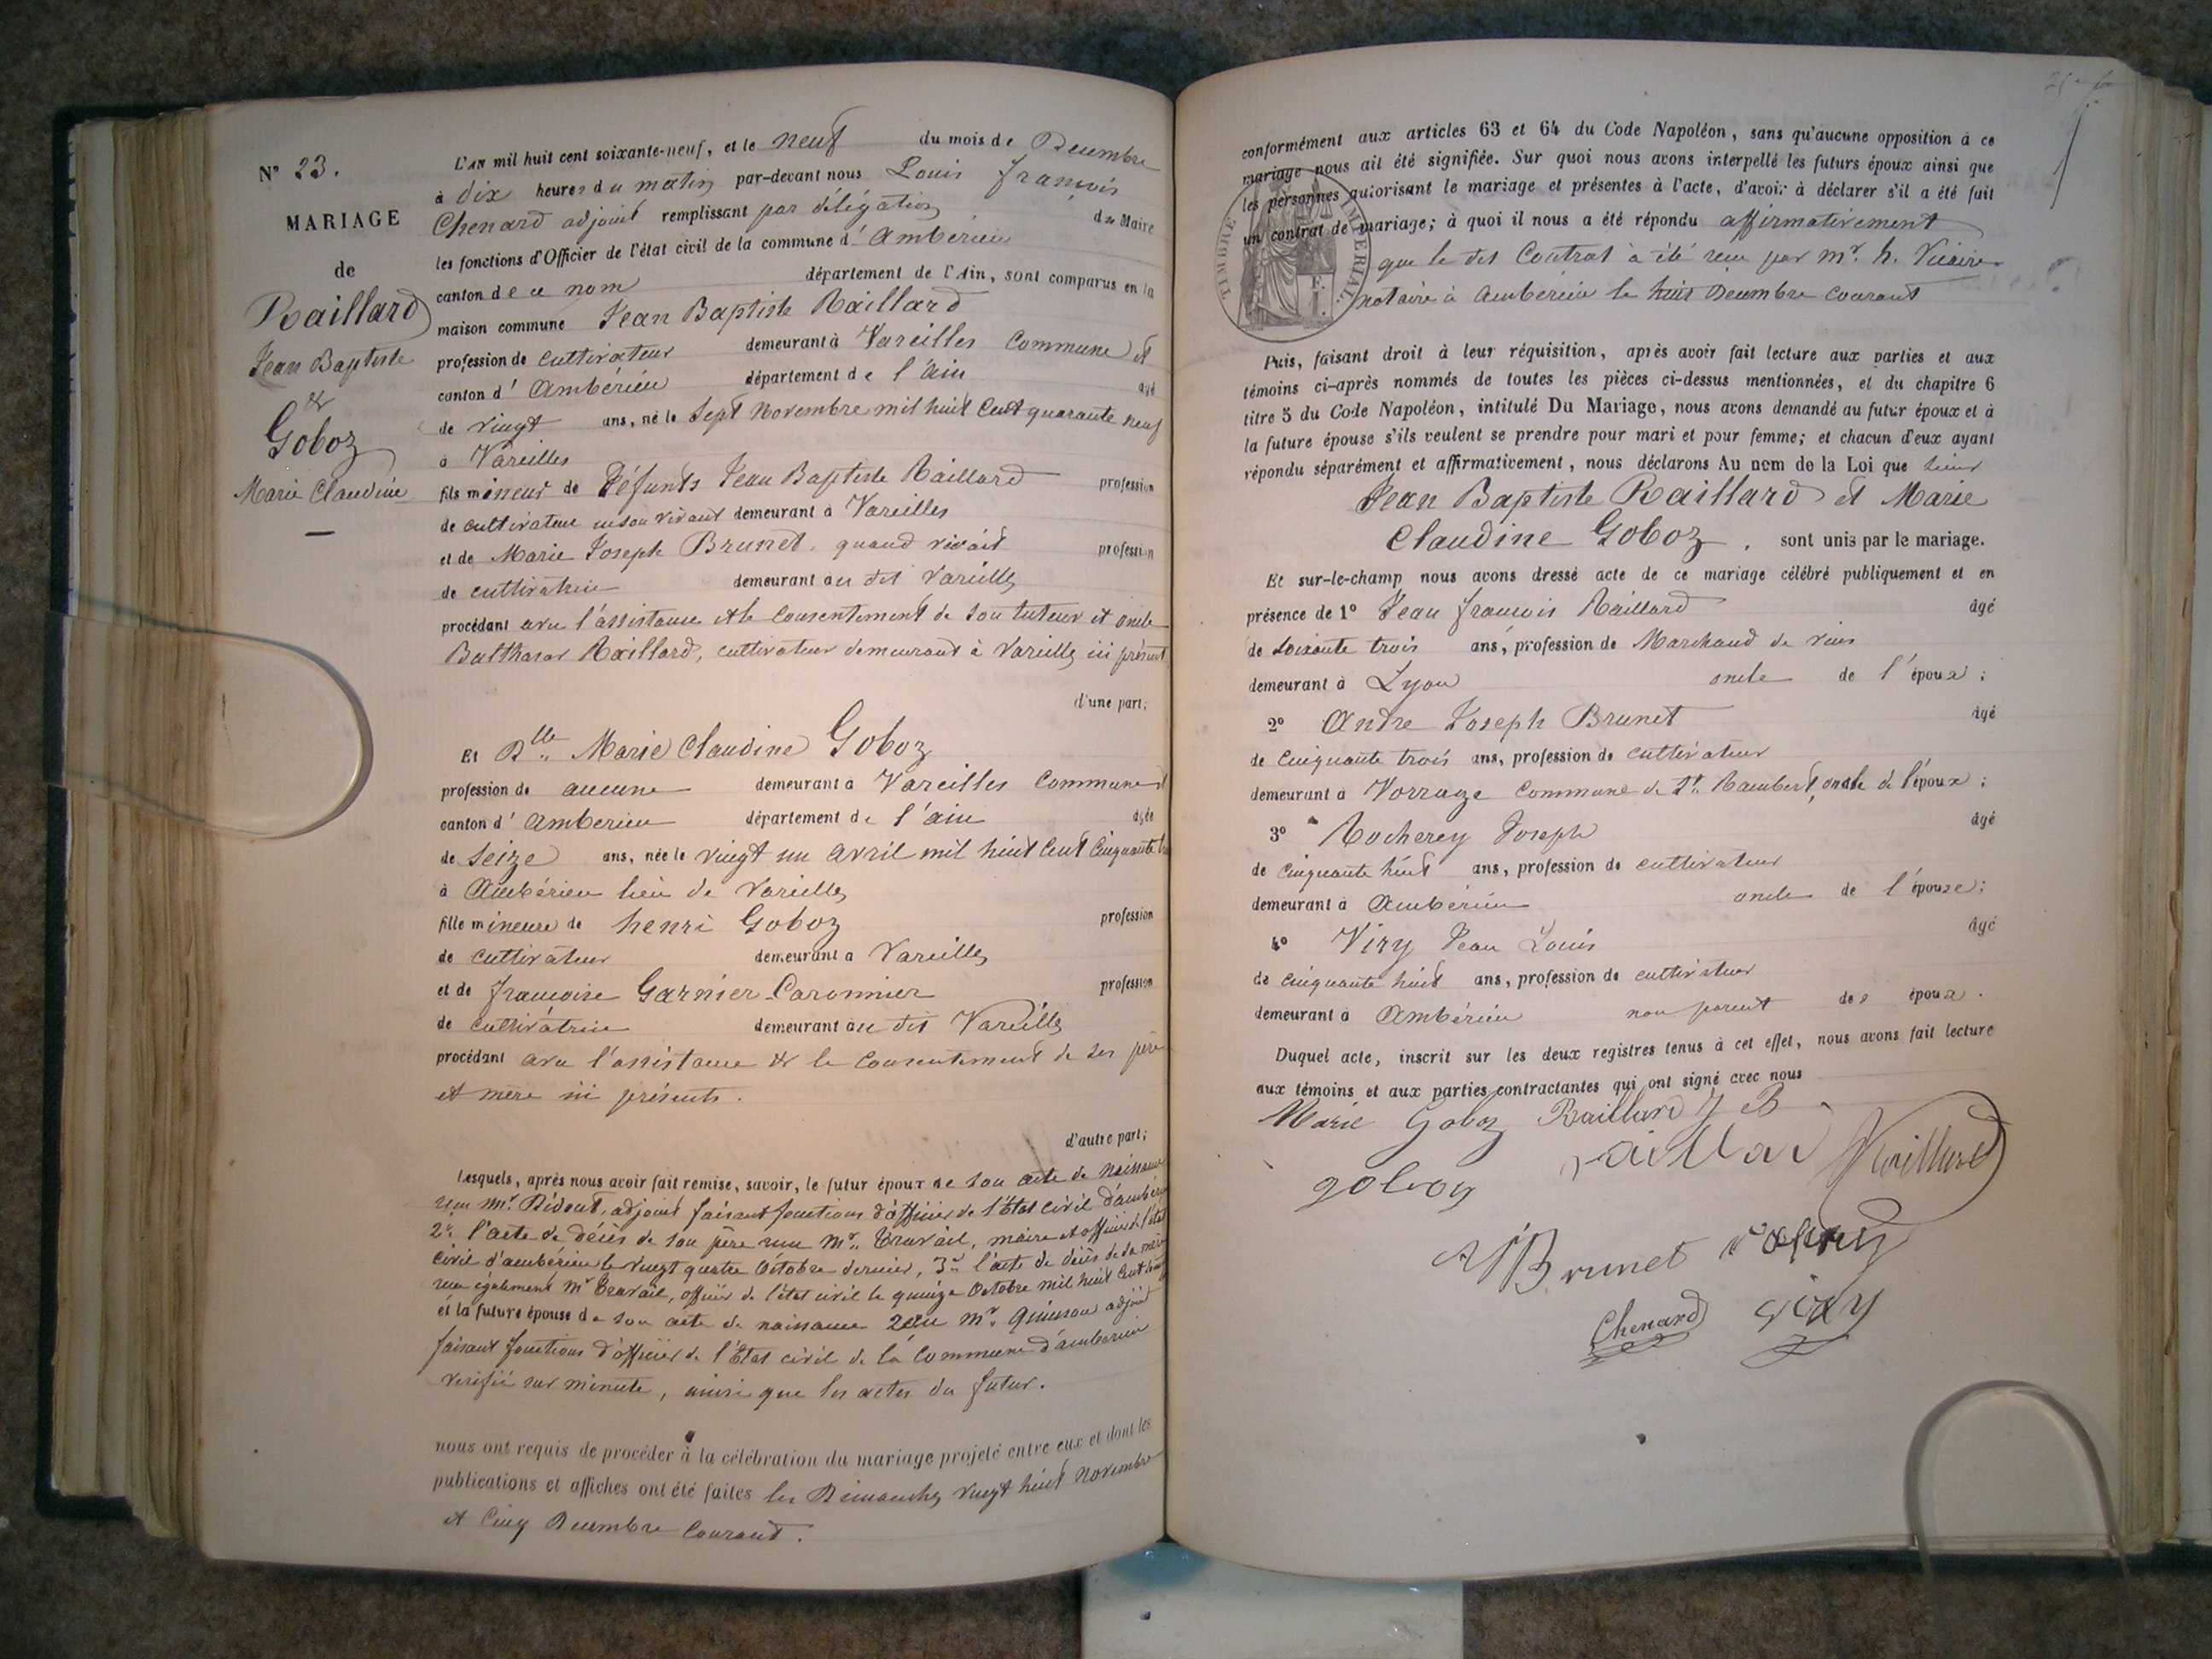 N° 23.
MARIAGE
de
Raillard
Jean Baptiste
&
Goboz
Marie Claudine
L'AN mil huit cent soixante-neuf, et le neuf du mois de Decembre
à dix heures du matin par-devant nous Louis françois
Chenard adjoint remplissant par délégation du Maire
les fonctions d'Officier de l'état civil de la commune d'Ambérieu
canton de ce nom département de l'Ain, sont comparus en la
maison commune Jean Baptiste Raillard
profession de cultivateur demeurant à Vareilles commune et
canton d'Ambérieu département de l'ain âgé
de vingt ans, né le sept Novembre mil huit cent quarante neuf
à Vareilles
fils mineur de Défunts Jean Baptiste Raillard profession
de cultivateur en son vivant demeurant à Vareilles
et de Marie Joseph Brunet quand vivait profession
de cultivatrice demeurant au dit Vareilles
procédant avec l'assistance et le consentement de son tuteur et oncle
Balthazar Raillard, cultivateur demeurant à Vareilles ici présent
d'une part;
Et Dlle Marie Claudine Goboz
profession de aucune demeurant à Vareilles Commune et
canton d'Amberieu département de l'ain âgée
de seize ans, née le vingt un avril mil huit cent cinquante
à Ambérieu lieu de Vareilles
fille mineure de henri Goboz profession
de cultivateur demeurant à Vareilles
et de françoise Garnier-Caronnier profession
de cultivatrice demeurant au dit Vareilles
procédant avec l'assistance & le consentement de ses père
et mère ici présents.
d'autre part;
Lesquels, après nous avoir fait remise, savoir, le futur époux de son acte de naissance
reçu Mr. adjoint faisant fonctions d'officier de l'Etat civil d'ambérieu
2° l'acte de décès de son père reçu Mr. Travail, maire et officier de l'état
civil d'ambérieu le vingt quatre Octobre dernier, 3° l'acte de décès de sa mère
reçu également Mr Travail, officier de l'état civil le quinze Octobre mil huit cent
et la future épouse de son acte de naissance reçu Mr. Quinson adjoint
faisant fonctions d'officier de l'Etat civil de la Commune d'ambérieu
vérifié sur minute, ainsi que les actes du futur.
nous ont requis de procéder à la célébration du mariage projeté entre eux et dont les
publications et affiches ont été faites les Dimanches vingt huit Novembre
et Cinq Decembre Courant.
conformément aux articles 63 et 64 du Code Napoléon, sans qu'aucune opposition à ce
mariage nous ait été signifiée. Sur quoi nous avons interpellé les futurs époux ainsi que
les personnes autorisant le mariage et présentes à l'acte, d'avoir à déclarer s'il a été fait
un contrat de mariage; à quoi il nous a été répondu affirmativement
que le dit Contrat à été reçu par Mr. h. Vicaire
notaire à Ambérieu le huit Decembre courant
TIMBRE IMPERIAL.
Puis, faisant droit à leur réquisition, après avoir fait lecture aux parties et aux
témoins ci-après nommés de toutes les pièces ci-dessus mentionnées, et du chapitre 6
titre 5 du Code Napoléon, intitulé Du Mariage, nous avons demandé au futur époux et à
la future épouse s'ils veulent se prendre pour mari et pour femme; et chacun d'eux ayant
répondu séparément et affirmativement, nous déclarons Au nom de la Loi que sieur
Jean Baptiste Raillard et Marie
Claudine Goboz. sont unis par le mariage.
Et sur-le-champ nous avons dressé acte de ce mariage célébré publiquement et en
présence de 1° Jean françois Raillard âgé
de soixante trois ans, profession de Marchand de vins
demeurant à Lyon oncle de l'époux;
2° Andre Joseph Brunet âgé
de cinquante trois ans, profession de cultivateur
demeurant à Vorraze Commune de St. Rambert, oncle de l'époux;
3° Rocherey Joseph âgé
de cinquante huit ans, profession de cultivateur
demeurant à Ambérieu oncle de l'épouse;
4° Viry Jean Louis âgé
de cinquante huit ans, profession de cultivateur
demeurant à Ambérieu non parent des époux.
Duquel acte, inscrit sur les deux registres tenus à cet effet, nous avons fait lecture
aux témoins et aux parties contractantes qui ont signé avec nous
Marie Goboz Raillard J B
goboz Raillard
Brunet
Chenard Viry